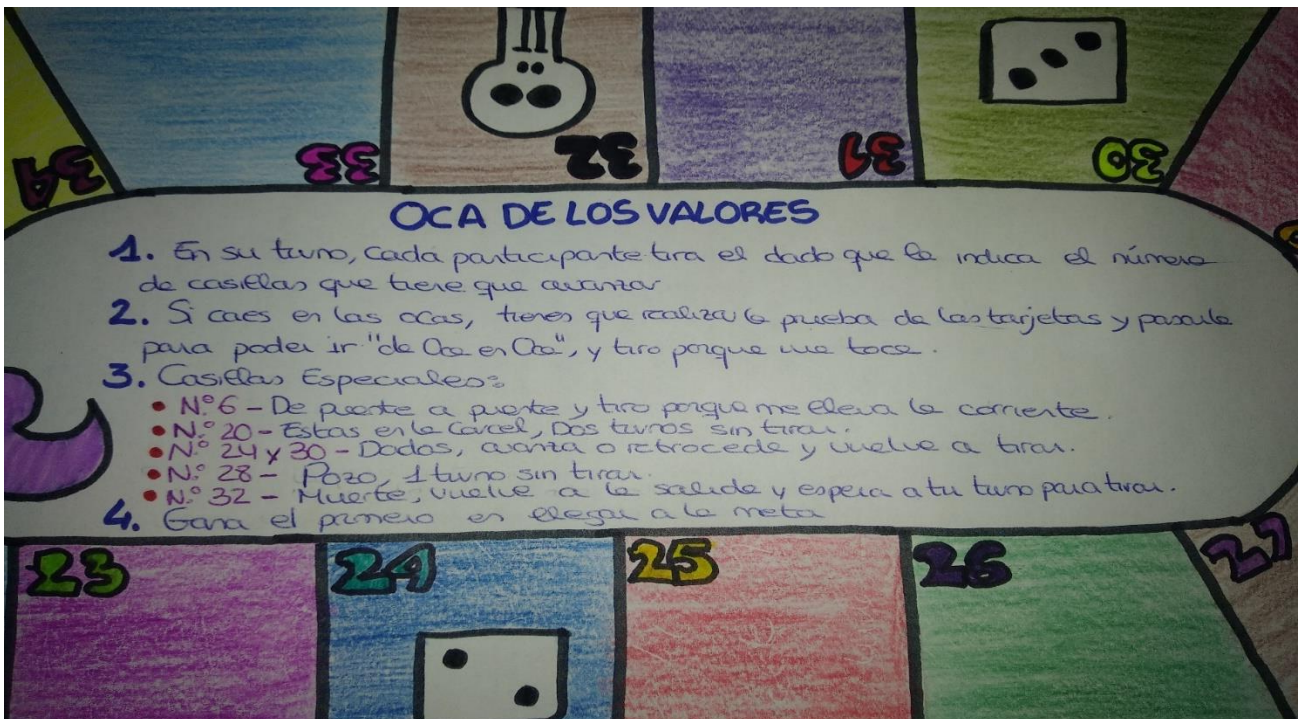 34 33 32 31 30
OCA DE LOS VALORES
1. En su turno, cada participante tira el dado que le indica el número
de casillas que tiene que avanzar
2. Si caes en las ocas, tienes que realizar la prueba de las tarjetas y pasarla
para poder ir "de Oca en Oca", y tiro porque me toca.
3. Casillas Especiales:
• N.º 6 - De puente a puente y tiro porque me lleva la corriente.
• N.º 20 - Estas en la Carcel, Dos turnos sin tirar.
• N.º 24 y 30 - Dados, avanza o retrocede y vuelve a tirar.
• N.º 28 - Pozo, 1 turno sin tirar.
• N.º 32 - Muerte, vuelve a la salida y espera a tu turno para tirar.
4. Gana el primero en llegar a la meta
23 24 25 26 27